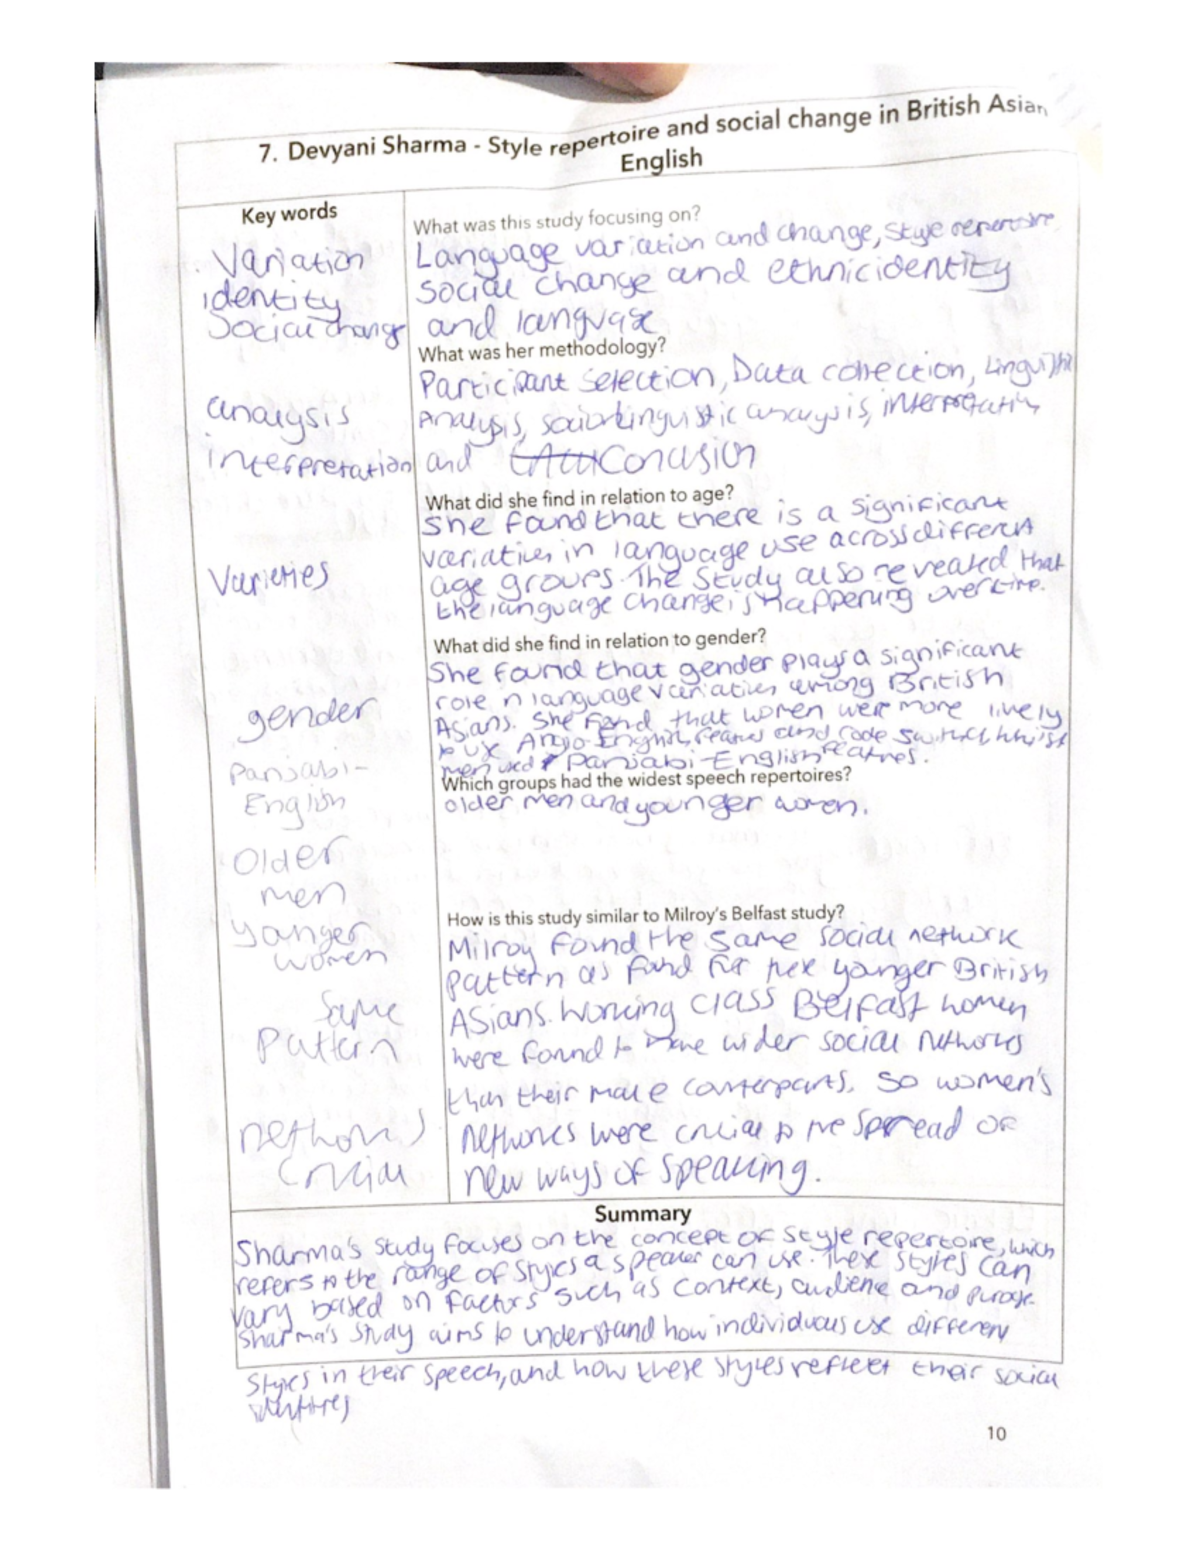 7. Devyani Sharma - Style repertoire and social change in British Asian
English
Key words
Variation
identity
Social change
analysis
interpretation
Varieties
gender
Panjabi-
English
Older
men
younger
women
Same
Pattern
networks
Crucial
What was this study focusing on?
Language variation and change, style repertoire
social change and ethnic identity
and language
What was her methodology?
Participant selection, Data collection, Linguistic
Analysis, sociolinguistic analysis, interpretation
and Conclusion
What did she find in relation to age?
She found that there is a significant
variation in language use across different
age groups. The study also revealed that
the language change is happening over time.
What did she find in relation to gender?
She found that gender plays a significant
role in language variation among British
Asians. She found that women were more likely
to use Anglo-English features and code switch whilst
men used Panjabi-English features.
Which groups had the widest speech repertoires?
older men and younger women.
How is this study similar to Milroy's Belfast study?
Milroy found the same social network
pattern as found for the younger British
Asians. Working class Belfast women
were found to have wider social networks
than their male counterparts. So women's
networks were crucial to the spread of
new ways of speaking.
Summary
Sharma's study focuses on the concept of style repertoire, which
refers to the range of styles a speaker can use. These styles can
vary based on factors such as context, audience and purpose.
Sharma's study aims to understand how individuals use different
styles in their speech, and how these styles reflect their social
identities
10